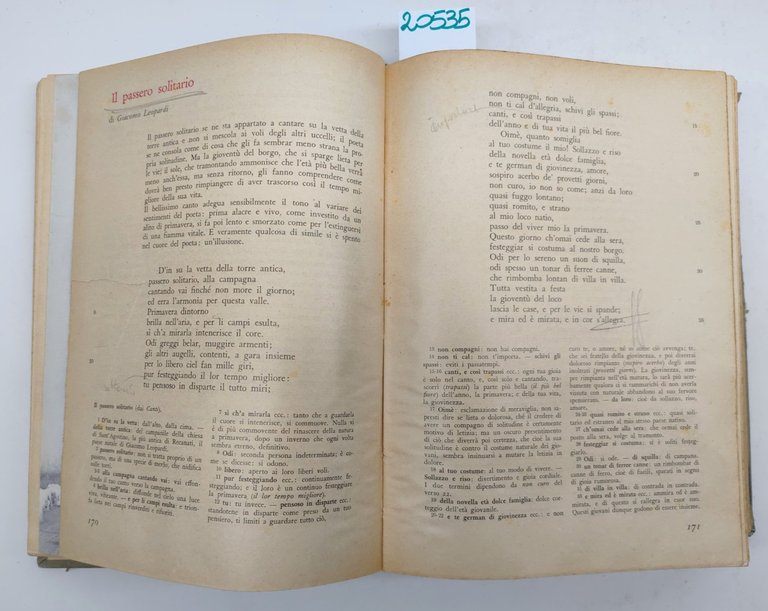 20535
Il passero solitario
di Giacomo Leopardi
Il passero solitario se ne sta appartato a cantare su la vetta della
torre antica e non si mescola ai voli degli altri uccelli; il poeta
se ne consola come di cosa che gli fa sembrar meno strana la pro-
pria solitudine. Ma la gioventù del borgo, che si sparge lieta per
le vie; il sole, che tramontando ammonisce che l'età più bella verrà
meno anch'essa, ma senza ritorno, gli fanno comprendere come
dovrà ben presto rimpiangere di aver trascorso così il tempo mi-
gliore della sua vita.
Il bellissimo canto adegua sensibilmente il tono al variare dei
sentimenti del poeta: prima alacre e vivo, come investito da un
alito di primavera, si fa poi lento e smorzato come per l'estinguersi
di una fiamma vitale. E veramente qualcosa di simile si è spento
nel cuore del poeta: un'illusione.
D'in su la vetta della torre antica,
passero solitario, alla campagna
cantando vai finché non more il giorno;
ed erra l'armonia per questa valle.
5 Primavera dintorno
brilla nell'aria, e per li campi esulta,
sì ch'a mirarla intenerisce il core.
Odi greggi belar, muggire armenti;
gli altri augelli, contenti, a gara insieme
10 per lo libero ciel fan mille giri,
pur festeggiando il lor tempo migliore:
tu pensoso in disparte il tutto miri;
Il passero solitario (dai Canti).
1 D'in su la vetta: dall'alto, dalla cima. —
della torre antica: del campanile della chiesa
di Sant'Agostino, la più antica di Recanati, il
paese natale di Giacomo Leopardi.
2 passero solitario: non si tratta proprio di un
passero, ma di una specie di merlo, che nidifica
sulle torri.
3 alla campagna cantando vai: vai effon-
dendo il tuo canto verso la campagna.
6 brilla nell'aria: diffonde nel cielo una luce
viva, vibrante. — e per li campi esulta: e trion-
fa lieta nei campi rinverditi e rifioriti.
7 sì ch'a mirarla ecc.: tanto che a guardarla
il cuore si intenerisce, si commuove. Nulla vi
è di più commovente del rinascere della natura
a primavera, dopo un inverno che ogni volta
sembrò eterno, definitivo.
8 Odi: seconda persona indeterminata; è co-
me se dicesse: si ode.
10 libero: aperto ai loro liberi voli.
11 pur festeggiando ecc.: continuamente fe-
steggiando; e il loro è un continuo festeggiare
la primavera (il lor tempo migliore).
12 tu: tu invece. — pensoso in disparte ecc.:
standotene in disparte come preso da un tuo
pensiero, ti limiti a guardare tutto ciò,
170
non compagni, non voli,
non ti cal d'allegria, schivi gli spassi;
15 canti, e così trapassi
dell'anno e di tua vita il più bel fiore.
Oimè, quanto somiglia
al tuo costume il mio! Sollazzo e riso
della novella età dolce famiglia,
20 e te german di giovinezza, amore,
sospiro acerbo de' provetti giorni,
non curo, io non so come; anzi da loro
quasi fuggo lontano;
quasi romito, e strano
25 al mio loco natio,
passo del viver mio la primavera.
Questo giorno ch'omai cede alla sera,
festeggiar si costuma al nostro borgo.
Odi per lo sereno un suon di squilla,
30 odi spesso un tonar di ferree canne,
che rimbomba lontan di villa in villa.
Tutta vestita a festa
la gioventù del loco
lascia le case, e per le vie si spande;
35 e mira ed è mirata, e in cor s'allegra.
13 non compagni: non hai compagni.
14 non ti cal: non t'importa. — schivi gli
spassi: eviti i passatempi.
15-16 canti, e così trapassi ecc.: ogni tua gioia
è solo nel canto, e, così solo e cantando, trascorri
(trapassi) la parte più bella (il più bel
fiore) dell'anno, la primavera; e della tua vita,
la giovinezza.
17 Oimè: esclamazione di meraviglia, non sa-
presti dire se lieta o dolorosa, che il credere di
aver un compagno di solitudine è certamente
motivo di letizia; ma un oscuro presentimento
di ciò che diverrà poi certezza, che cioè la sua
solitudine è contraria al costume naturale dei gio-
vani, sembra insinuarsi a mutare la letizia in
dolore.
18 al tuo costume: al tuo modo di vivere. —
Sollazzo e riso: divertimento e gioia cordiale.
I due termini dipendono da non curo del
verso 22.
19 della novella età dolce famiglia: dolce cor-
teggio dell'età giovanile.
20-22 e te german di giovinezza ecc.: e non
curo te, o amore, né so come ciò avvenga; te,
che sei fratello della giovinezza, e poi diverrai
doloroso rimpianto (sospiro acerbo) degli anni
inoltrati (provetti giorni). La giovinezza, sem-
pre rimpianta nell'età matura, lo sarà più acer-
bamente qualora ci si rammarichi di non averla
vissuta con naturale abbandono al suo fervore
spensierato. — da loro: cioè da sollazzo, riso,
amore.
24-25 quasi romito e strano ecc.: quasi soli-
tario ed estraneo al mio stesso paese nativo.
27 ch'omai cede alla sera: che ormai cede il
posto alla sera, volge al tramonto.
28 festeggiar si costuma: si è soliti festeg-
giarlo.
29 Odi: si ode. — di squilla: di campana.
30 un tonar di ferree canne: un rimbombar di
canne di ferro, cioè di fucili, sparati in segno
di gioia rumorosa.
31 di villa in villa: di contrada in contrada.
35 e mira ed è mirata ecc.: ammira ed è am-
mirata, e di questo si rallegra in cuor suo.
Questi giovani dunque godono di essere insieme.
171